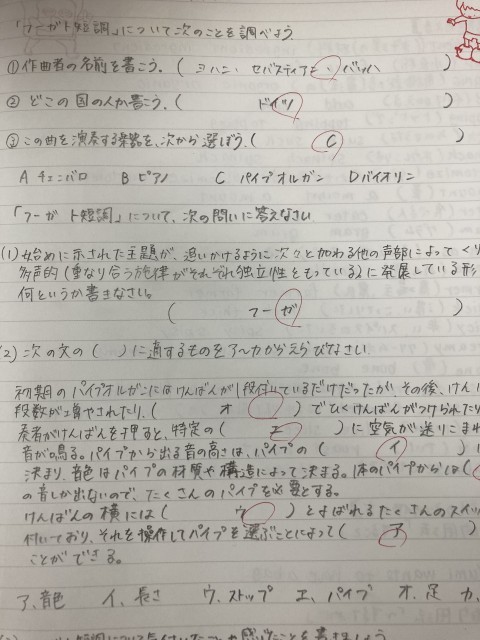 「フーガト短調」について次のことを調べよう
①作曲者の名前を書こう。( ヨハン・セバスティアン・バッハ )
② どこの国の人か書こう。( ドイツ )
③この曲を演奏する楽器を、次から選ぼう。( C )
A チェンバロ B ピアノ C パイプオルガン D バイオリン
「フーガト短調」について、次の問いに答えなさい
(1) 始めに示された主題が、追いかけるように次々と加わる他の声部によってくり
多声的(重なり合う旋律がそれぞれ独立性をもっている)に発展している形
何というか書きなさい。
( フーガ )
(2) 次の文の( )に適するものをア〜カからえらびなさい
初期のパイプオルガンにはけんばんが1段付いているだけだったが、その後、けん
段数が増やされたり、( オ )でひくけんばんがつけられたり
奏者がけんばんを押すと、特定の( エ )に空気が送りこまれ
音が鳴る。パイプから出る音の高さは、パイプの( イ )
決まり、音色はパイプの材質や構造によって決まる。1本のパイプからは(
の音しか出ないので、たくさんのパイプを必要とする。
けんばんの横には( ウ )とよばれるたくさんのスイッ
付いており、それを操作してパイプを選ぶことによって( ア )
ことができる。
ア、音色 イ、長さ ウ、ストップ エ、パイプ オ、足 カ、